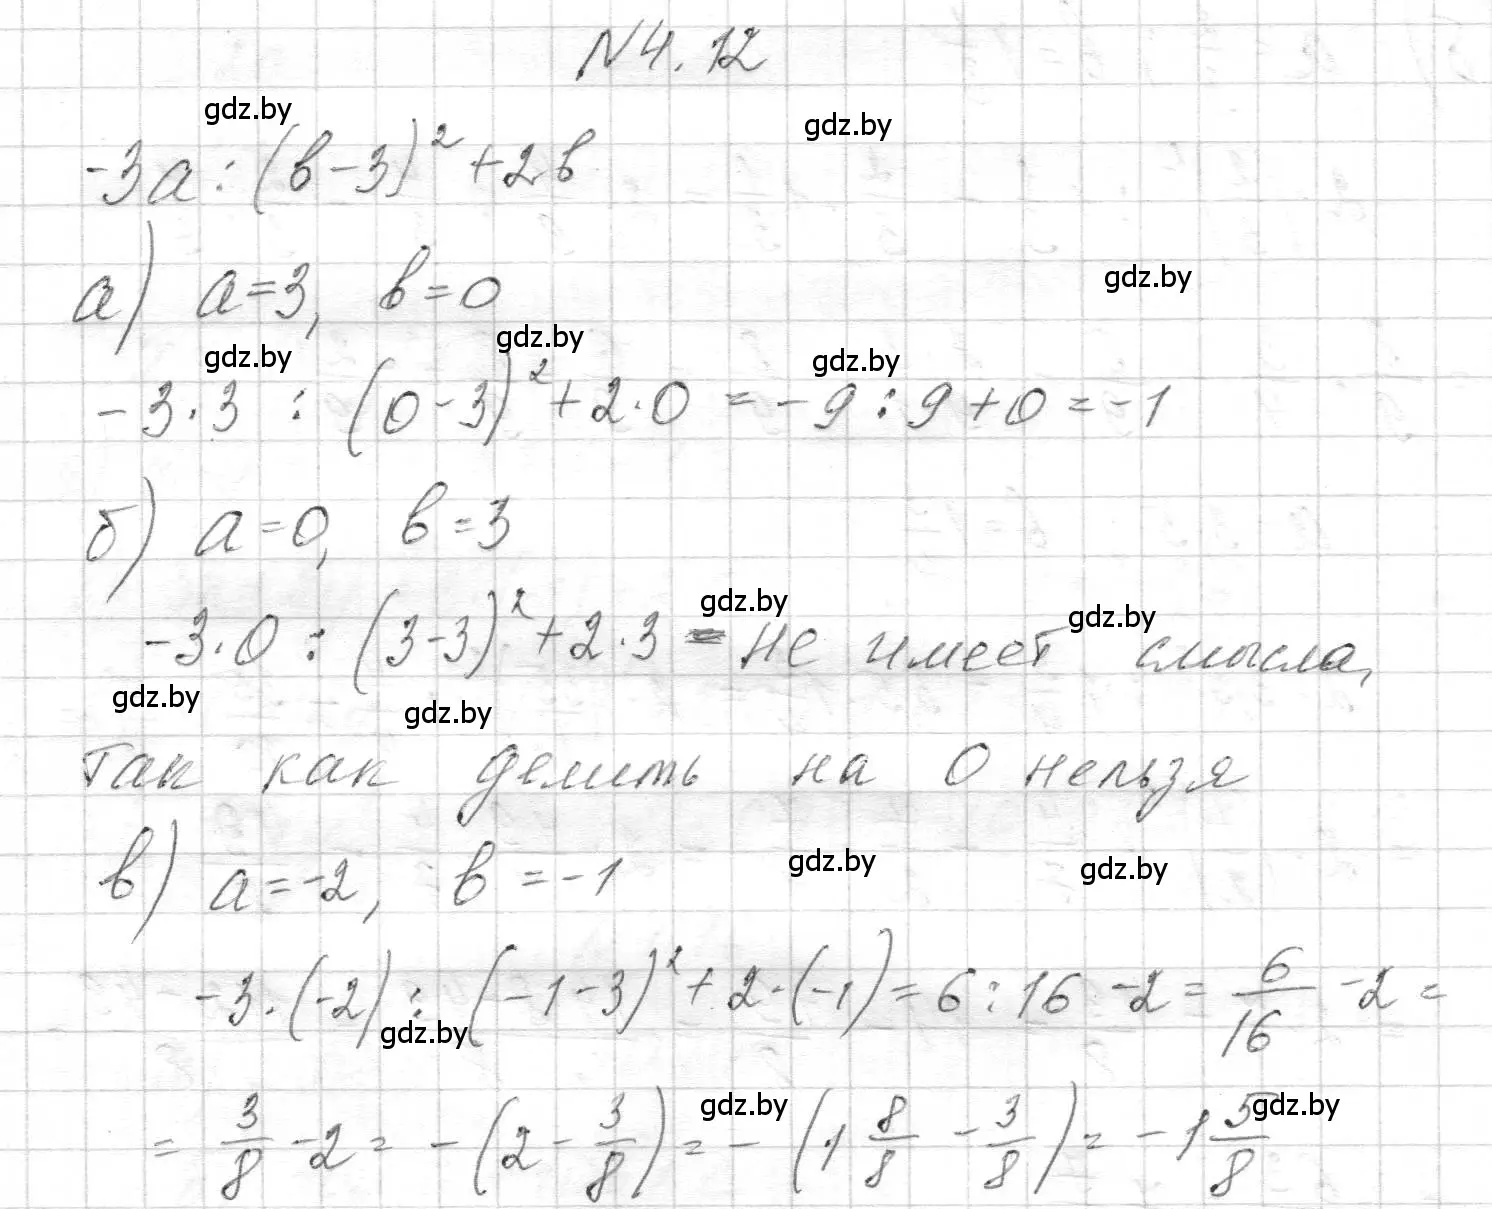 N4.12
gdz.by
gdz.by
-3a : (в-3)² + 2в
а) a=3, в=0
gdz.by
gdz.by
gdz.by
gdz.by
-3·3 : (0-3)² + 2·0 = -9 : 9 + 0 = -1
б) a=0, в=3
gdz.by
gdz.by
-3·0 : (3-3)² + 2·3 = не имеет смысла,
gdz.by
gdz.by
так как делить на 0 нельзя
в) a=-2, в=-1
gdz.by
gdz.by
-3·(-2) : (-1-3)² + 2·(-1) = 6 : 16 - 2 = 6/16 - 2 =
gdz.by
gdz.by
gdz.by
= 3/8 - 2 = -(2 - 3/8) = -(1 8/8 - 3/8) = -1 5/8